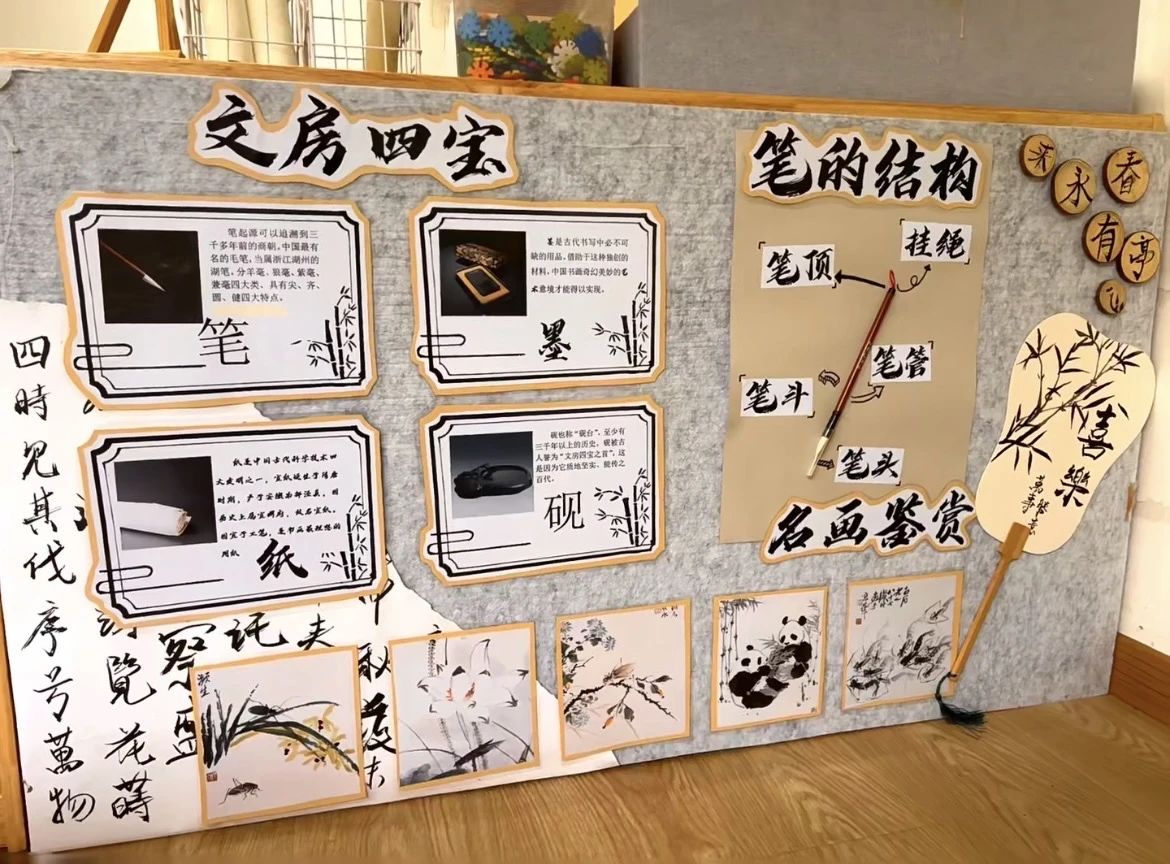 文房四宝
笔起源可以追溯到三
千多年前的商朝,中国最有
名的毛笔,当属浙江湖州的
湖笔,分羊毫、狼毫、紫毫、
兼毫四大类、具有尖、齐、
圆、健四大特点。
笔
墨是古代书写中必不可
缺的用品,借助于这种独创的
材料,中国书画奇幻美妙的艺
术意境才能得以实现。
墨
纸是中国古代科学技术四
大发明之一,宣纸诞生于隋唐
时期,产于安徽南部泾县,因
历史上属宣州府,故名宣纸。
因宣于工笔,是书画最理想的
用纸
纸
砚也称“砚台”,至少有
三千年以上的历史,砚被古
人誉为“文房四宝之首”,这
是因为它质地坚实、能传之
百代。
砚
笔的结构
笔顶
挂绳
笔管
笔斗
笔头
名画鉴赏
春
亭
永
有
喜
樂
四時见其代序号萬物
覽花蒔